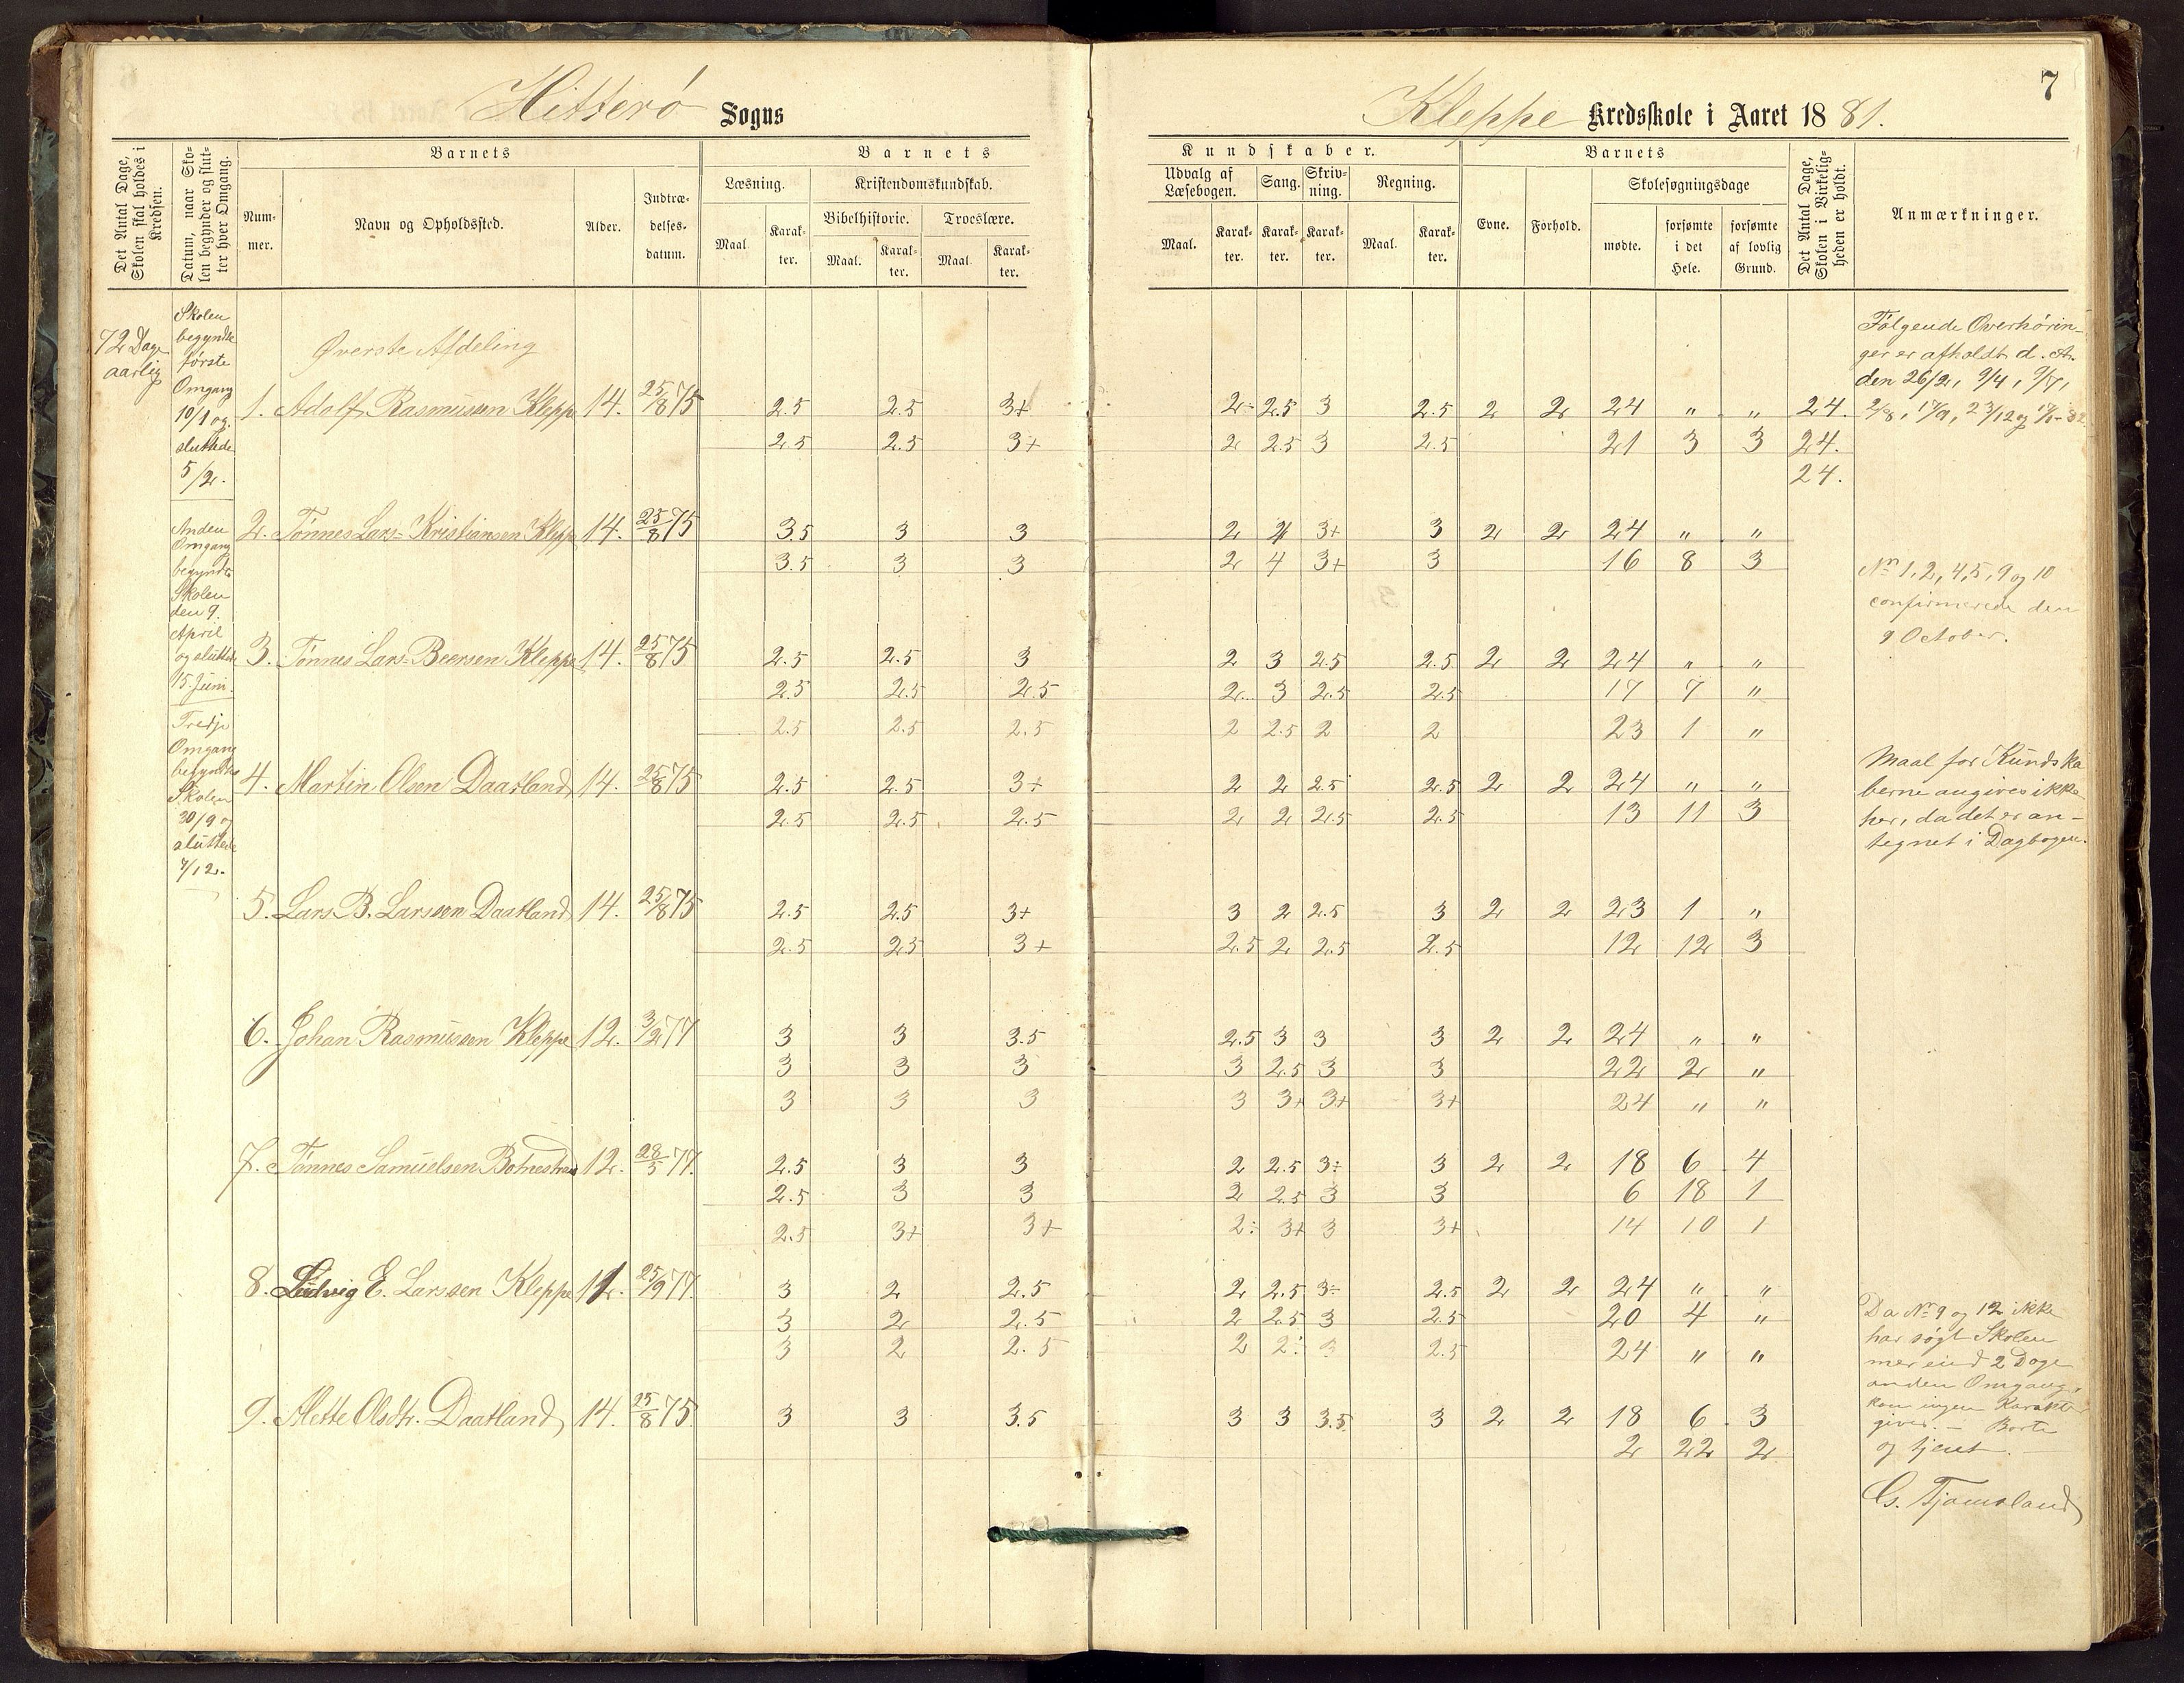 Hitterö Sogns
Kleppe Kredsskole i Aaret 1881.
7
Det Antal Dage, Skolen skal holdes i Kredsen.
Datum, naar Skolen begynder og slutter hver Omgang.
Barnets
Nummer.
Navn og Opholdssted.
Alder.
Indtrædelsesdatum.
Barnets
Læsning.
Maal.
Karakter.
Kristendomskundskab.
Bibelhistorie.
Maal.
Karakter.
Troeslære.
Maal
Karakter.
Kundskaber.
Udvalg af Læsebogen.
Maal.
Karakter.
Sang.
Karakter.
Skrivning.
Karakter.
Regning.
Maal.
Karakter.
Barnets
Evne.
Forhold.
Skolesøgningsdage
mødte.
forsømte i det Hele.
forsømte af lovlig Grund.
Det Antal Dage, Skolen i Virkeligheden er holdt.
Anmærkninger.
72 Dage
aarlig
Skolen
begyndte
første
Omgang
10/1 og
sluttede
5/2.
Anden
Omgang
begyndte
Skolen
den 9.
April
og sluttede
15. Juni.
Tredje
Omgang
begyndte
Skolen
30/9 og
sluttede
7/12.
Øverste Afdeling
1. Adolf Rasmussen Klepp 14. 25/8 75 2.5 2.5 3+ 2÷ 2.5 3 2.5 2 2 24 " " 24.
2.5 2.5 3+ 2 2.5 3 2.5 21 3 3 24.
24.
2. Tønnes Lars-Kristiansen Klepp 14. 25/8 75 3.5 3 3 2 4 3+ 3 2 2 24 " "
3.5 3 3 2 4 3+ 3 16 8 3
3. Tønnes Lars-Beersen Kleppe 14. 25/8 75 2.5 2.5 3 2 3 2.5 2.5 2 2 24 " "
2.5 2.5 2.5 2 3 2.5 2.5 17 7 "
2.5 2.5 2.5 2 2.5 2 2 23 1 "
4. Martin Olsen Daatland 14. 25/8 75 2.5 2.5 3+ 2 2 2.5 2.5 2 2 24 " "
2.5 2.5 2.5 2 2 2.5 2.5 13 11 3
5. Lars B. Larssen Daatland 14. 25/8 75 2.5 2.5 3+ 3 2 2.5 3 2 2 23 1 "
2.5 2.5 3+ 2.5 2 2.5 2.5 12 12 3
6. Johan Rasmussen Kleppe 12. 3/2 77 3 3 3.5 2.5 3 3 3 2 2 24 " "
3 3 3 3 2.5 3 3 22 2 "
3 3 3 3 3+ 3+ 3+ 24 " "
7. Tønnes Samuelsen 12. 28/5 77. 2.5 3 3 2 2.5 3÷ 3 2 2 18 6 4
2.5 3 3 2 2.5 3 3 6 18 1
2.5 3+ 3+ 2÷ 3+ 3 3+ 14 10 1
8. Ludvig E. Larssen Kleppe 25/9 77. 3 2 2.5 2 2.5 3÷ 2.5 2 2 24 " "
3 2 2.5 2 2.5 3 2.5 20 4 "
3 2 2.5 2 2÷ 3 2.5 24 " "
9. Mette Olsdtr. Daatland 14. 25/8 75. 3 3 3.5 3 3 3.5 3 2 2 18 6 3
2 22 2
Følgende Overhørin-
ger er afholdt d. A.
den 26/2, 9/4, 9/7,
2/8, 17/9, 23/12 og
Nr. 1, 2, 4, 5, 9 og 10
confirmerede den
9 October.
Maal for Kundska
berne angives ikke
her, da det er an-
tegnet i Dagbogen.
Da Nr. 9 og 12 ikke
har søgt Skolen
mer end 2 Dage
anden Omgang,
kan ingen Karakter
gives. - Borte
og tjent.
Tjamsland